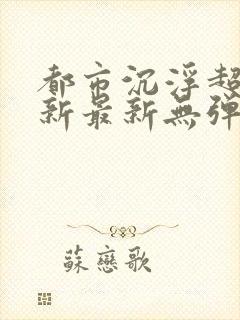 都市沉浮超
新最新無彈
蘇戀歌